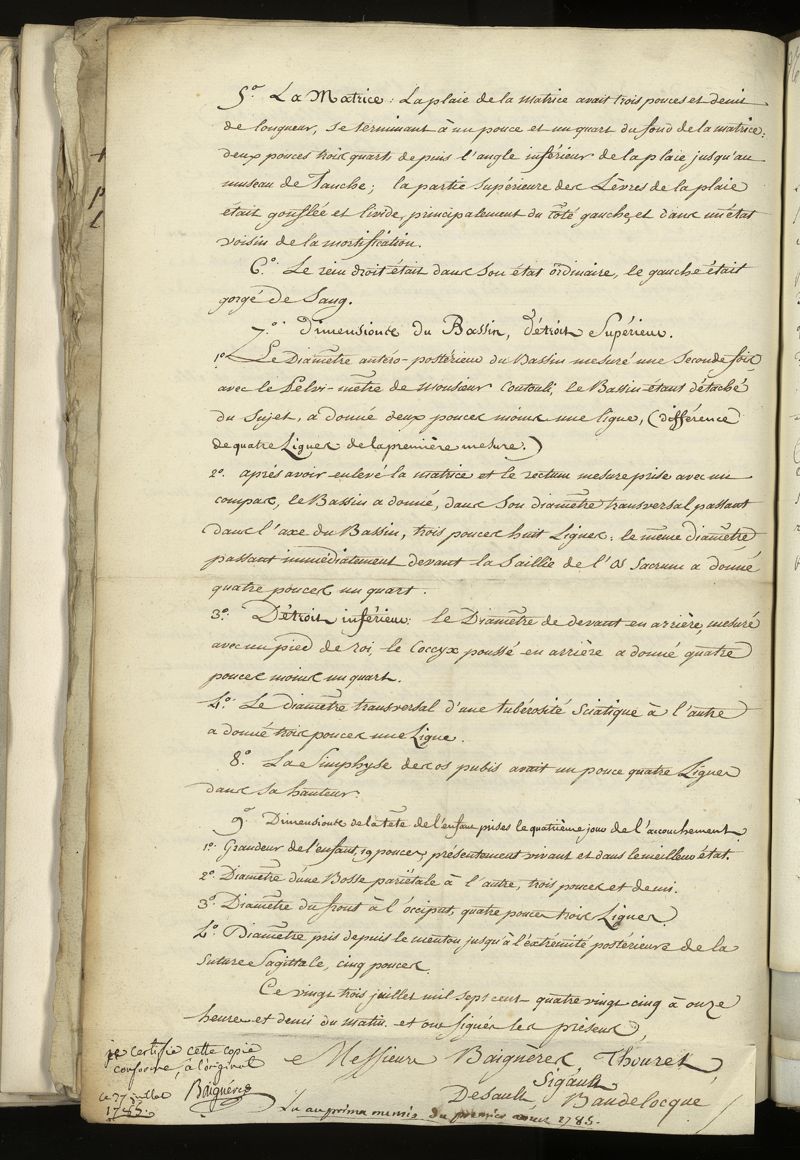 5.° La Matrice: La plaie de la matrice avait trois pouces et demi
de longueur, se terminant à un pouce et un quart du fond de la matrice:
deux pouces trois quarts depuis l'angle inférieur de la plaie jusqu'au
museau de Tanche; la partie Supérieure des Lèvres de la plaie
était gonflée et livide, principalement du côté gauche, et dans un état
voisin de la mortification.
6.° Le rein droit était dans son état ordinaire, le gauche était
gorgé de Sang.
7.° Dimensions du Bassin, Détroit Supérieur.
1.° Le Diamètre antéro-postérieur du Bassin mesuré une seconde fois
avec le Pelvi-mètre de Monsieur Coutouli, le Bassin étant détaché
du Sujet, a donné deux pouces moins une ligne, (différence
de quatre Lignes de la première mesure.)
2.° après avoir enlevé la matrice et le rectum mesure prise avec un
compas, le Bassin a donné, dans son diamètre transversal passant
dans l'axe du Bassin, trois pouces huit Lignes: le même diamètre
passant immédiatement devant la Saillie de l'Os Sacrum a donné
quatre pouces un quart.
3.° Détroit inférieur: le Diamètre de devant en arrière, mesuré
avec un pied de roi, le Coccyx poussé en arrière a donné quatre
pouces moins un quart.
4.° Le diamètre transversal d'une tubérosité Sciatique à l'autre
a donné trois pouces une Ligne.
8.° La Simphyse des os pubis avait un pouce quatre Lignes
dans sa hauteur.
9.° Dimensions de la tête de l'enfant prises le quatrième jour de l'accouchement.
1.° Grandeur de l'enfant, 19 pouces, présentement vivant et dans le meilleur état.
2.° Diamètre d'une Bosse pariétale à l'autre, trois pouces et demi.
3.° Diamètre du front à l'occiput, quatre pouces trois Lignes.
4.° Diamètre pris depuis le menton jusqu'à l'extrémité postérieure de la
Suture Sagittale, cinq pouces.
Ce vingt trois juillet mil sept cent quatre vingt cinq à onze
heures et demi du matin. et ont signés les présens,
Messieurs Baignères Thouret
Sigault
Desault Baudelocque
je certifie cette copie
conforme, à l'original
ce 27 juillet
1785. Baignères
Lu au prima mensis du premier 1785.